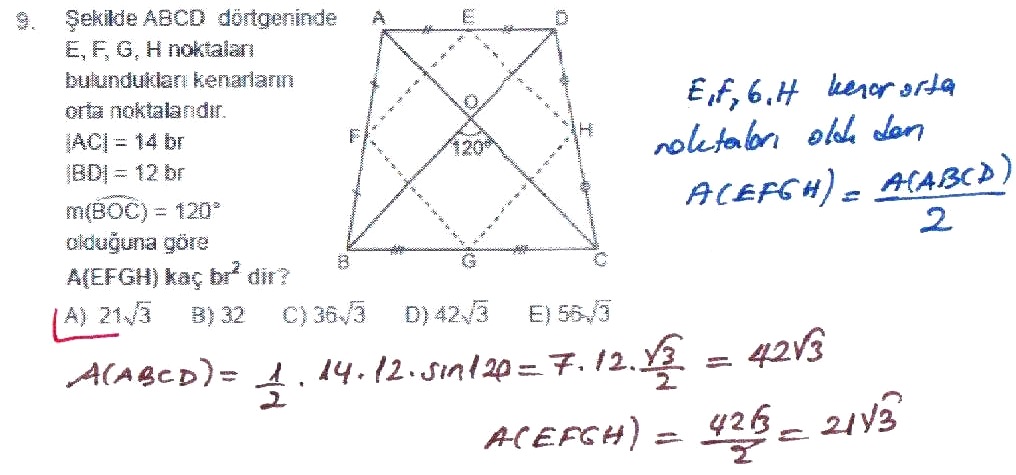 9. Şekilde ABCD dörtgeninde
E, F, G, H noktaları
bulundukları kenarların
orta noktalarıdır.
|AC| = 14 br
|BD| = 12 br
m(BOC) = 120°
olduğuna göre
A(EFGH) kaç br² dir?
A) 21√3 B) 32 C) 36√3 D) 42√3 E) 56√3
A E D
O
F 120° H
B G C
E,F,G,H kenar orta
noktaları olduğ dan
A(EFGH) = A(ABCD)/2
A(ABCD) = 1/2 . 14 . 12 . sin120 = 7 . 12 . √3/2 = 42√3
A(EFGH) = 42√3/2 = 21√3